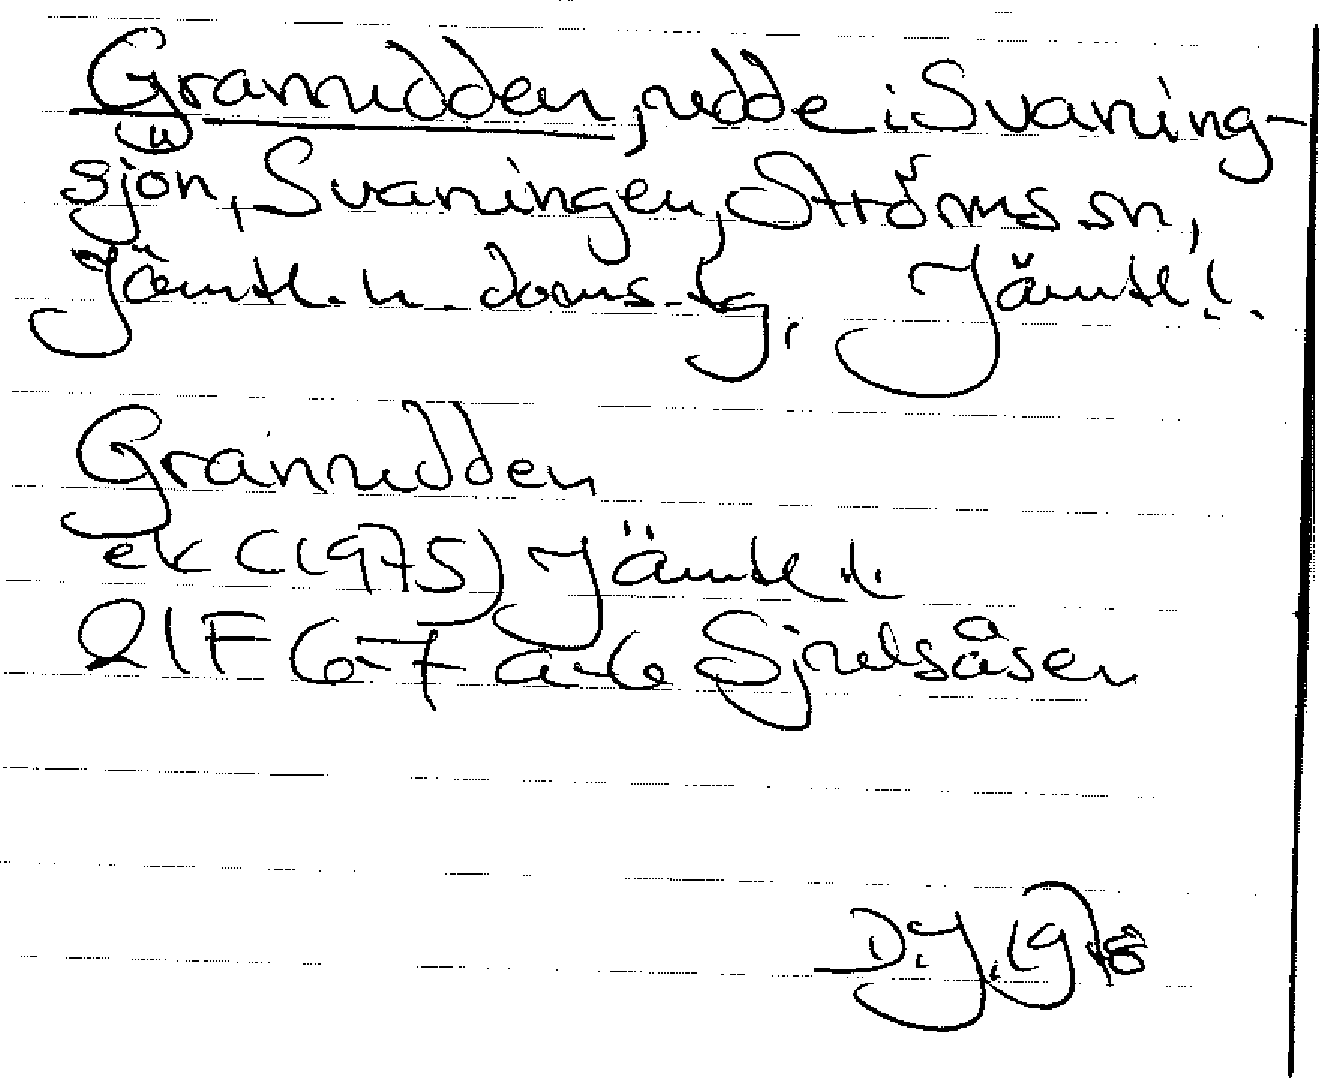 Granudden, udde i Svaning-
sjön, Svaningen, Ströms sn,
Jämtl. n. doms-sg, Jämtl.l.
Granudden
ek C (1975) Jämtl.l.
21F 6-7 a-b Sjulsåsen
D.J. 1978